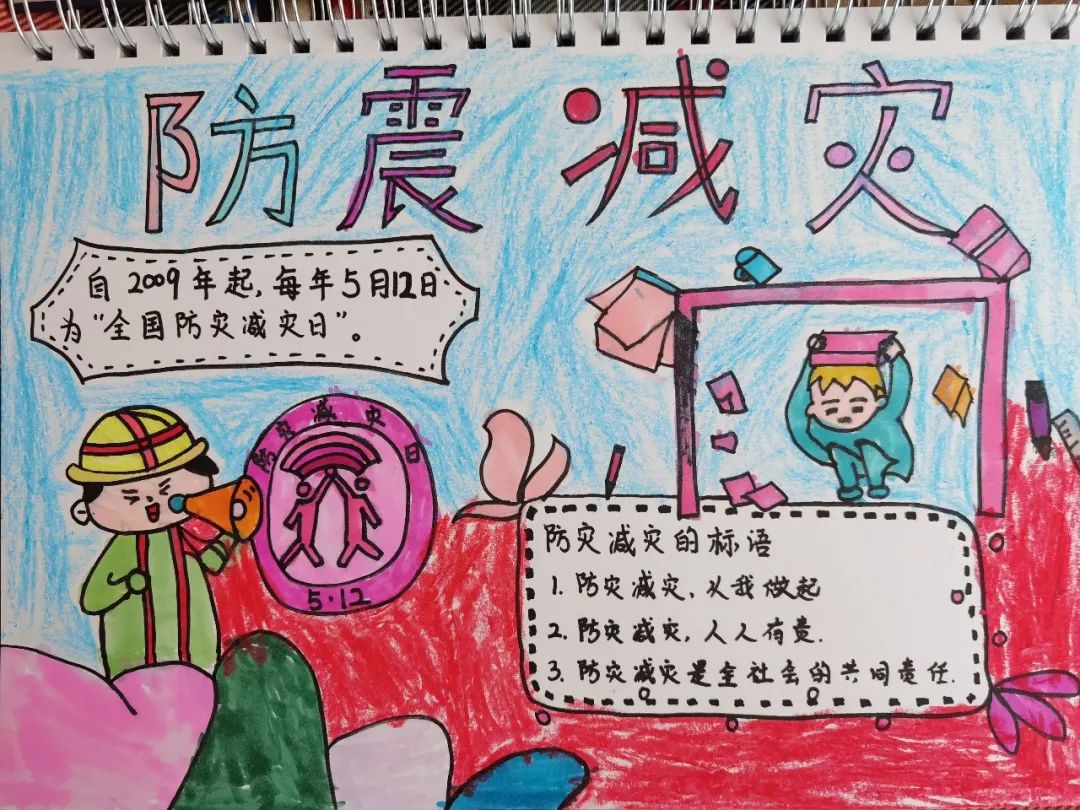 防震减灾
自2009年起,每年5月12日
为“全国防灾减灾日”。
防灾减灾日
5·12
防灾减灾的标语
1. 防灾减灾,从我做起
2. 防灾减灾,人人有责.
3. 防灾减灾是全社会的共同责任.